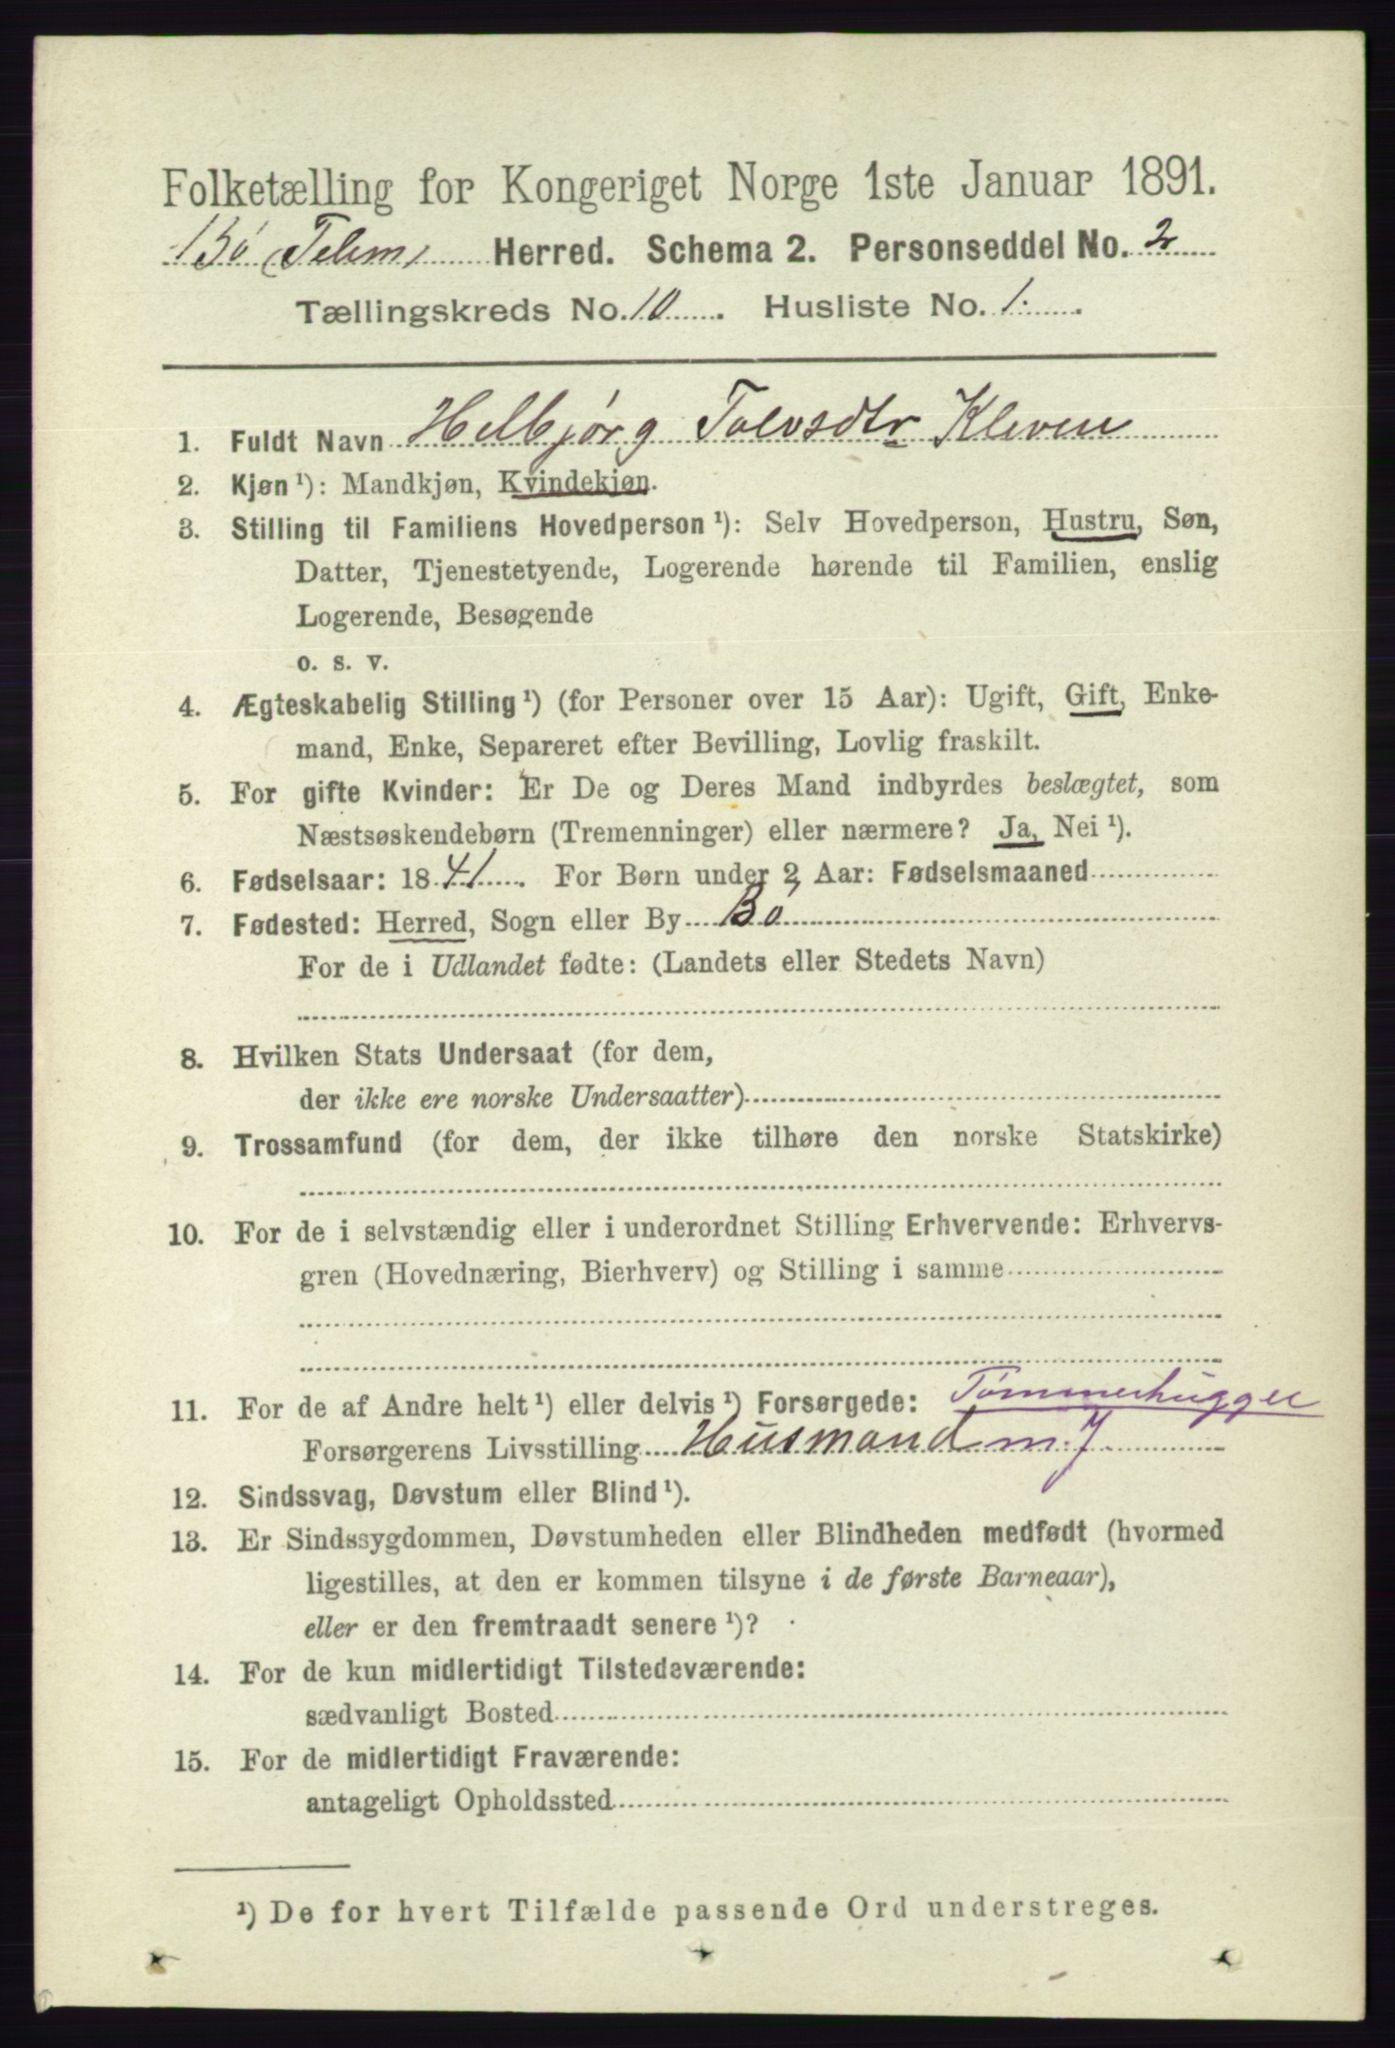 Folketælling for Kongeriget Norge 1ste Januar 1891.
Bø (Telem) Herred. Schema 2. Personseddel No. 2
Tællingskreds No. 10. Husliste No. 1.
1. Fuldt Navn Helbjørg Tolvsdtr Kleven
2. Kjøn ¹): Mandkjøn, Kvindekjøn.
3. Stilling til Familiens Hovedperson ¹): Selv Hovedperson, Hustru, Søn,
Datter, Tjenestetyende, Logerende hørende til Familien, enslig
Logerende, Besøgende
o. s. v.
4. Ægteskabelig Stilling ¹) (for Personer over 15 Aar): Ugift, Gift, Enke-
mand, Enke, Separeret efter Bevilling, Lovlig fraskilt.
5. For gifte Kvinder: Er De og Deres Mand indbyrdes beslægtet, som
Næstsøskendebørn (Tremenninger) eller nærmere? Ja, Nei ¹).
6. Fødselsaar: 1841. For Børn under 2 Aar: Fødselsmaaned
7. Fødested: Herred, Sogn eller By Bø
For de i Udlandet fødte: (Landets eller Stedets Navn)
8. Hvilken Stats Undersaat (for dem,
der ikke ere norske Undersaatter)
9. Trossamfund (for dem, der ikke tilhøre den norske Statskirke)
10. For de i selvstændig eller i underordnet Stilling Erhvervende: Erhvervs-
gren (Hovednæring, Bierhverv) og Stilling i samme
11. For de af Andre helt ¹) eller delvis ¹) Forsørgede: Tømmerhugger
Forsørgerens Livsstilling Husmand m. J
12. Sindssvag, Døvstum eller Blind ¹).
13. Er Sindssygdommen, Døvstumheden eller Blindheden medfødt (hvormed
ligestilles, at den er kommen tilsyne i de første Barneaar),
eller er den fremtraadt senere ¹)?
14. For de kun midlertidigt Tilstedeværende:
sædvanligt Bosted
15. For de midlertidigt Fraværende:
antageligt Opholdssted
¹) De for hvert Tilfælde passende Ord understreges.